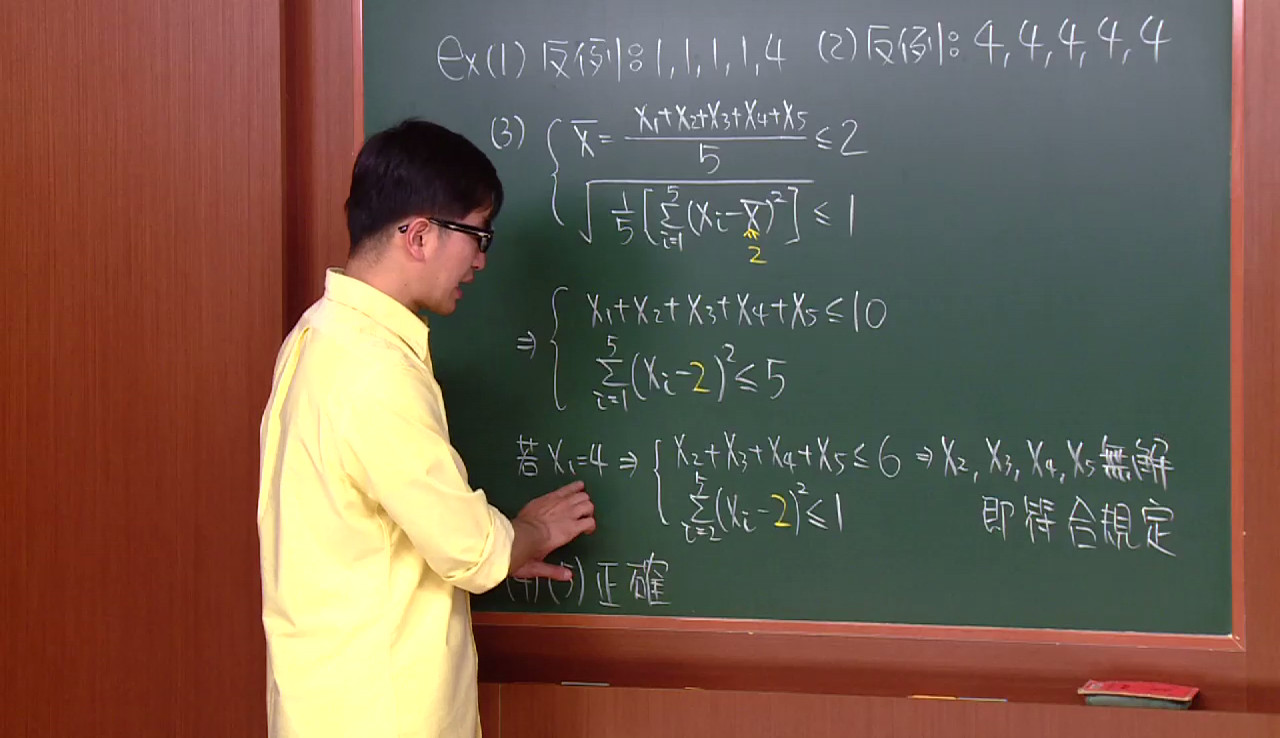 ex(1) 反例: 1, 1, 1, 1, 4 (2) 反例: 4, 4, 4, 4, 4
(3) { X̄ = (X₁+X₂+X₃+X₄+X₅)/5 ≤ 2
√(1/5[Σᵢ₌₁⁵(Xᵢ-X̄)²]) ≤ 1
2
⇒ { X₁+X₂+X₃+X₄+X₅ ≤ 10
Σᵢ₌₁⁵(Xᵢ-2)² ≤ 5
若 X₁=4 ⇒ { X₂+X₃+X₄+X₅ ≤ 6 ⇒ X₂, X₃, X₄, X₅ 無解
Σᵢ₌₂⁵(Xᵢ-2)² ≤ 1 即符合規定
(4)(5) 正確